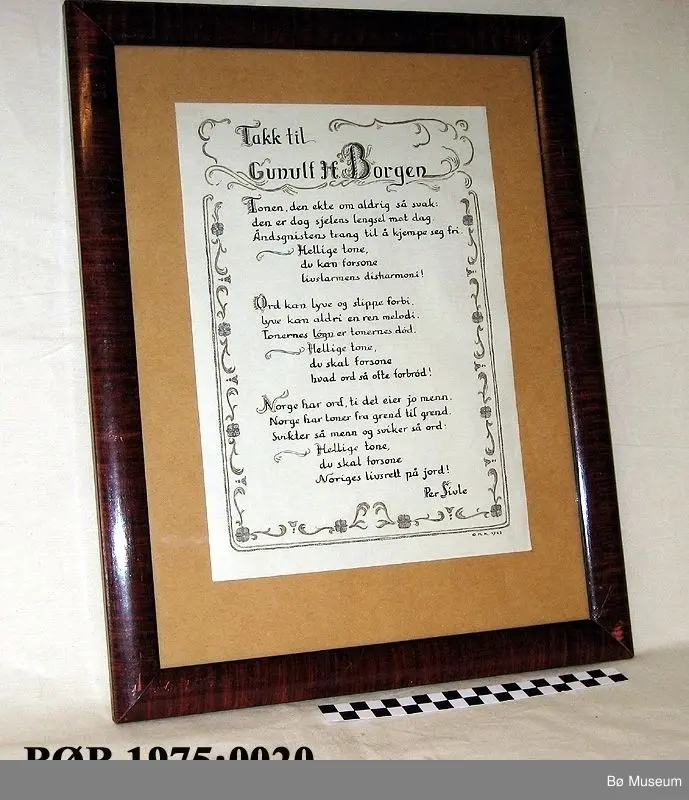 Takk til
Gunulf H. Borgen
Tonen, den ekte om aldrig så svak:
den er dog sjelens lengsel mot dag.
Åndsgnistens trang til å kjempe seg fri.
Hellige tone,
du kan forsone
livslarmens disharmoni!
Ord kan lyve og slippe forbi,
lyve kan aldri en ren melodi.
Tonernes løgn er tonernes død.
Hellige tone,
du skal forsone
hvad ord så ofte forbrød!
Norge har ord, ti det eier jo menn.
Norge har toner fra grend til grend.
Svikter så menn og sviker så ord:
Hellige tone,
du skal forsone
Noriges livsrett på jord!
Per Sivle
BØB 1975:0020
Bø Museum